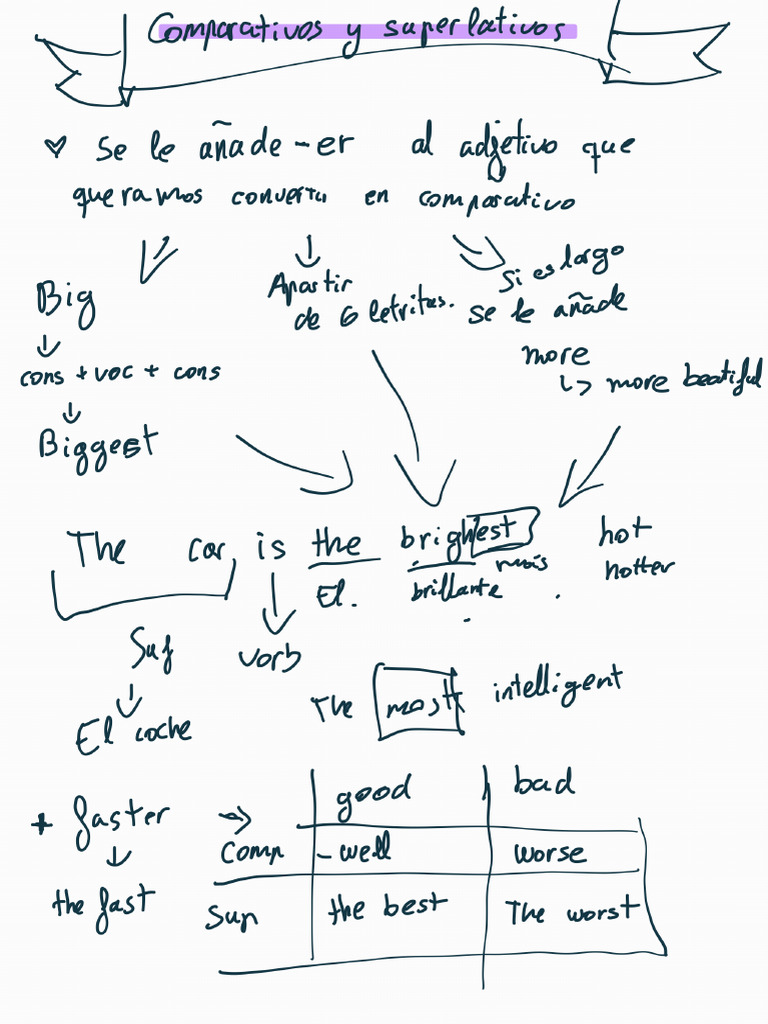 Comparativos y superlativos
♥ Se le añade -er al adjetivo que
queramos convertir en comparativo
Big
↓
cons + voc + cons
↓
Biggest
Apartir
de 6 letritas.
Si es largo
se le añade
more
↳ more beatiful
The car is the brighest
El.
brillante más
hot
hotter
Suj
↓
El coche
verb
The most intelligent
+ faster →
↓
the fast
good bad
Comp - well worse
Sup the best The worst